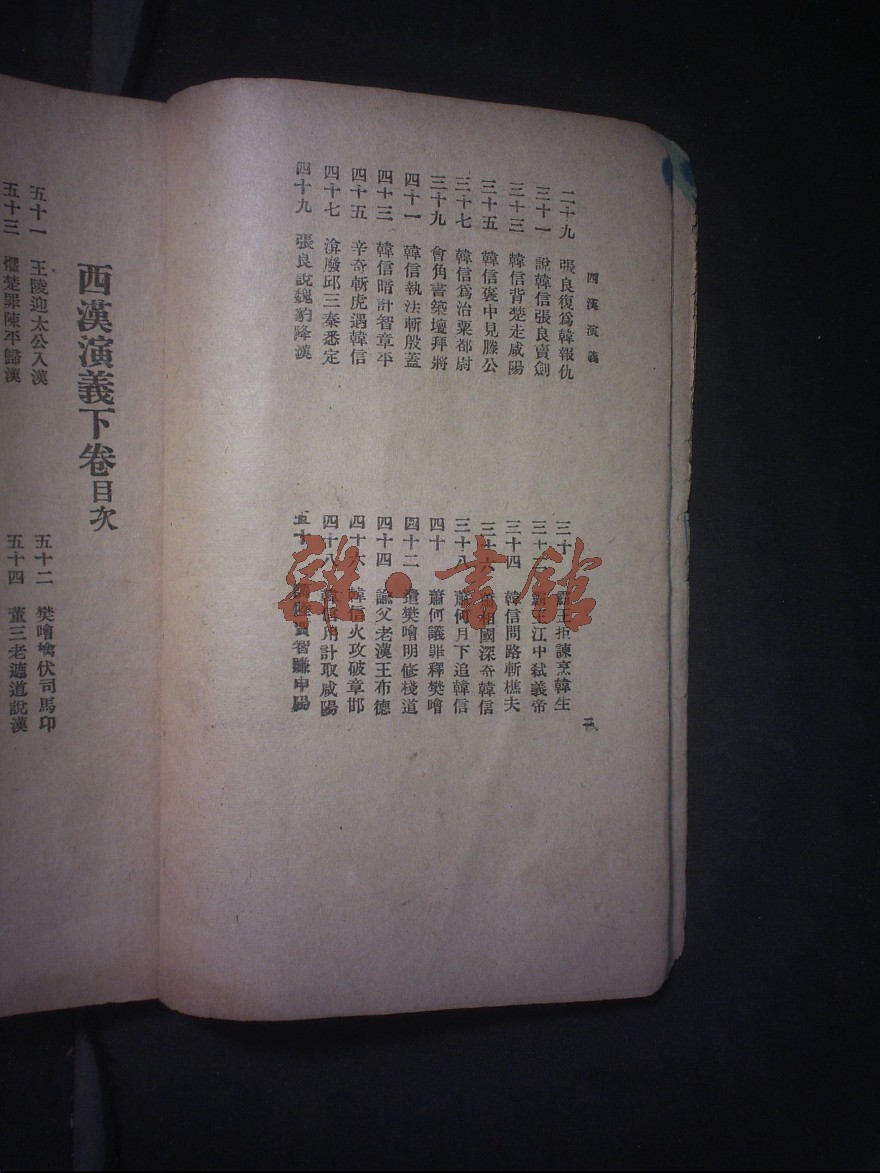 西漢演義
二十九 張良復爲韓報仇
三十一 說韓信張良賣劍
三十三 韓信背楚走咸陽
三十五 韓信褒中見滕公
三十七 韓信爲治粟都尉
三十九 會角書築壇拜將
四十一 韓信執法斬殷蓋
四十三 韓信暗計智章平
四十五 辛奇斬虎遇韓信
四十七 渰廢邱三秦悉定
四十九 張良說魏豹降漢
三十 霸王拒諫烹韓生
三十二 王江中弒義帝
三十四 韓信問路斬樵夫
三十六 相國深奇韓信
三十八 蕭何月下追韓信
四十 蕭何議罪釋樊噲
四十二 遣樊噲明修棧道
四十四 諭父老漢王布德
四十六 韓信火攻破章邯
四十八 韓信用計取咸陽
五十 賈智賺申陽
西漢演義下卷目次
五十一 王陵迎太公入漢
五十三 懼楚罪陳平歸漢
五十二 樊噲擒伏司馬卬
五十四 董三老遮道說漢
雜·書館